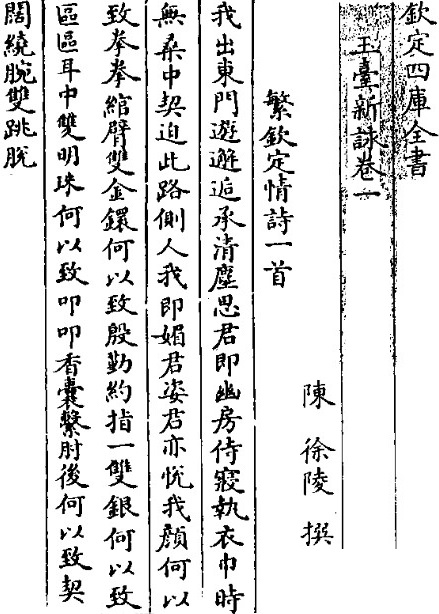 欽定四庫全書
玉臺新詠卷一
陳 徐陵 撰
繁欽定情詩一首
我出東門遊邂逅承清塵思君即幽房侍寢執衣巾時
無桑中契迫此路側人我即媚君姿君亦悅我顏何以
致拳拳綰臂雙金鐶何以致殷勤約指一雙銀何以致
區區耳中雙明珠何以致叩叩香囊繫肘後何以致契
闊繞腕雙跳脫